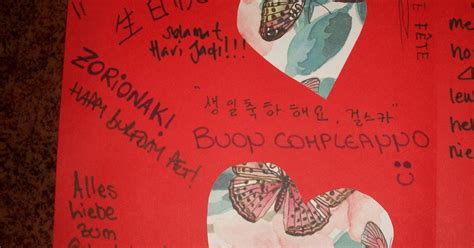 生日
Selamat
Hari Jadi!!!
FÊTE
ZORIONAK!
HAPPY BURFDAY PET!
"생일축하해요,
BUON COMPLEANNO
Alles
liebe
zum
me
leu
hel
nie